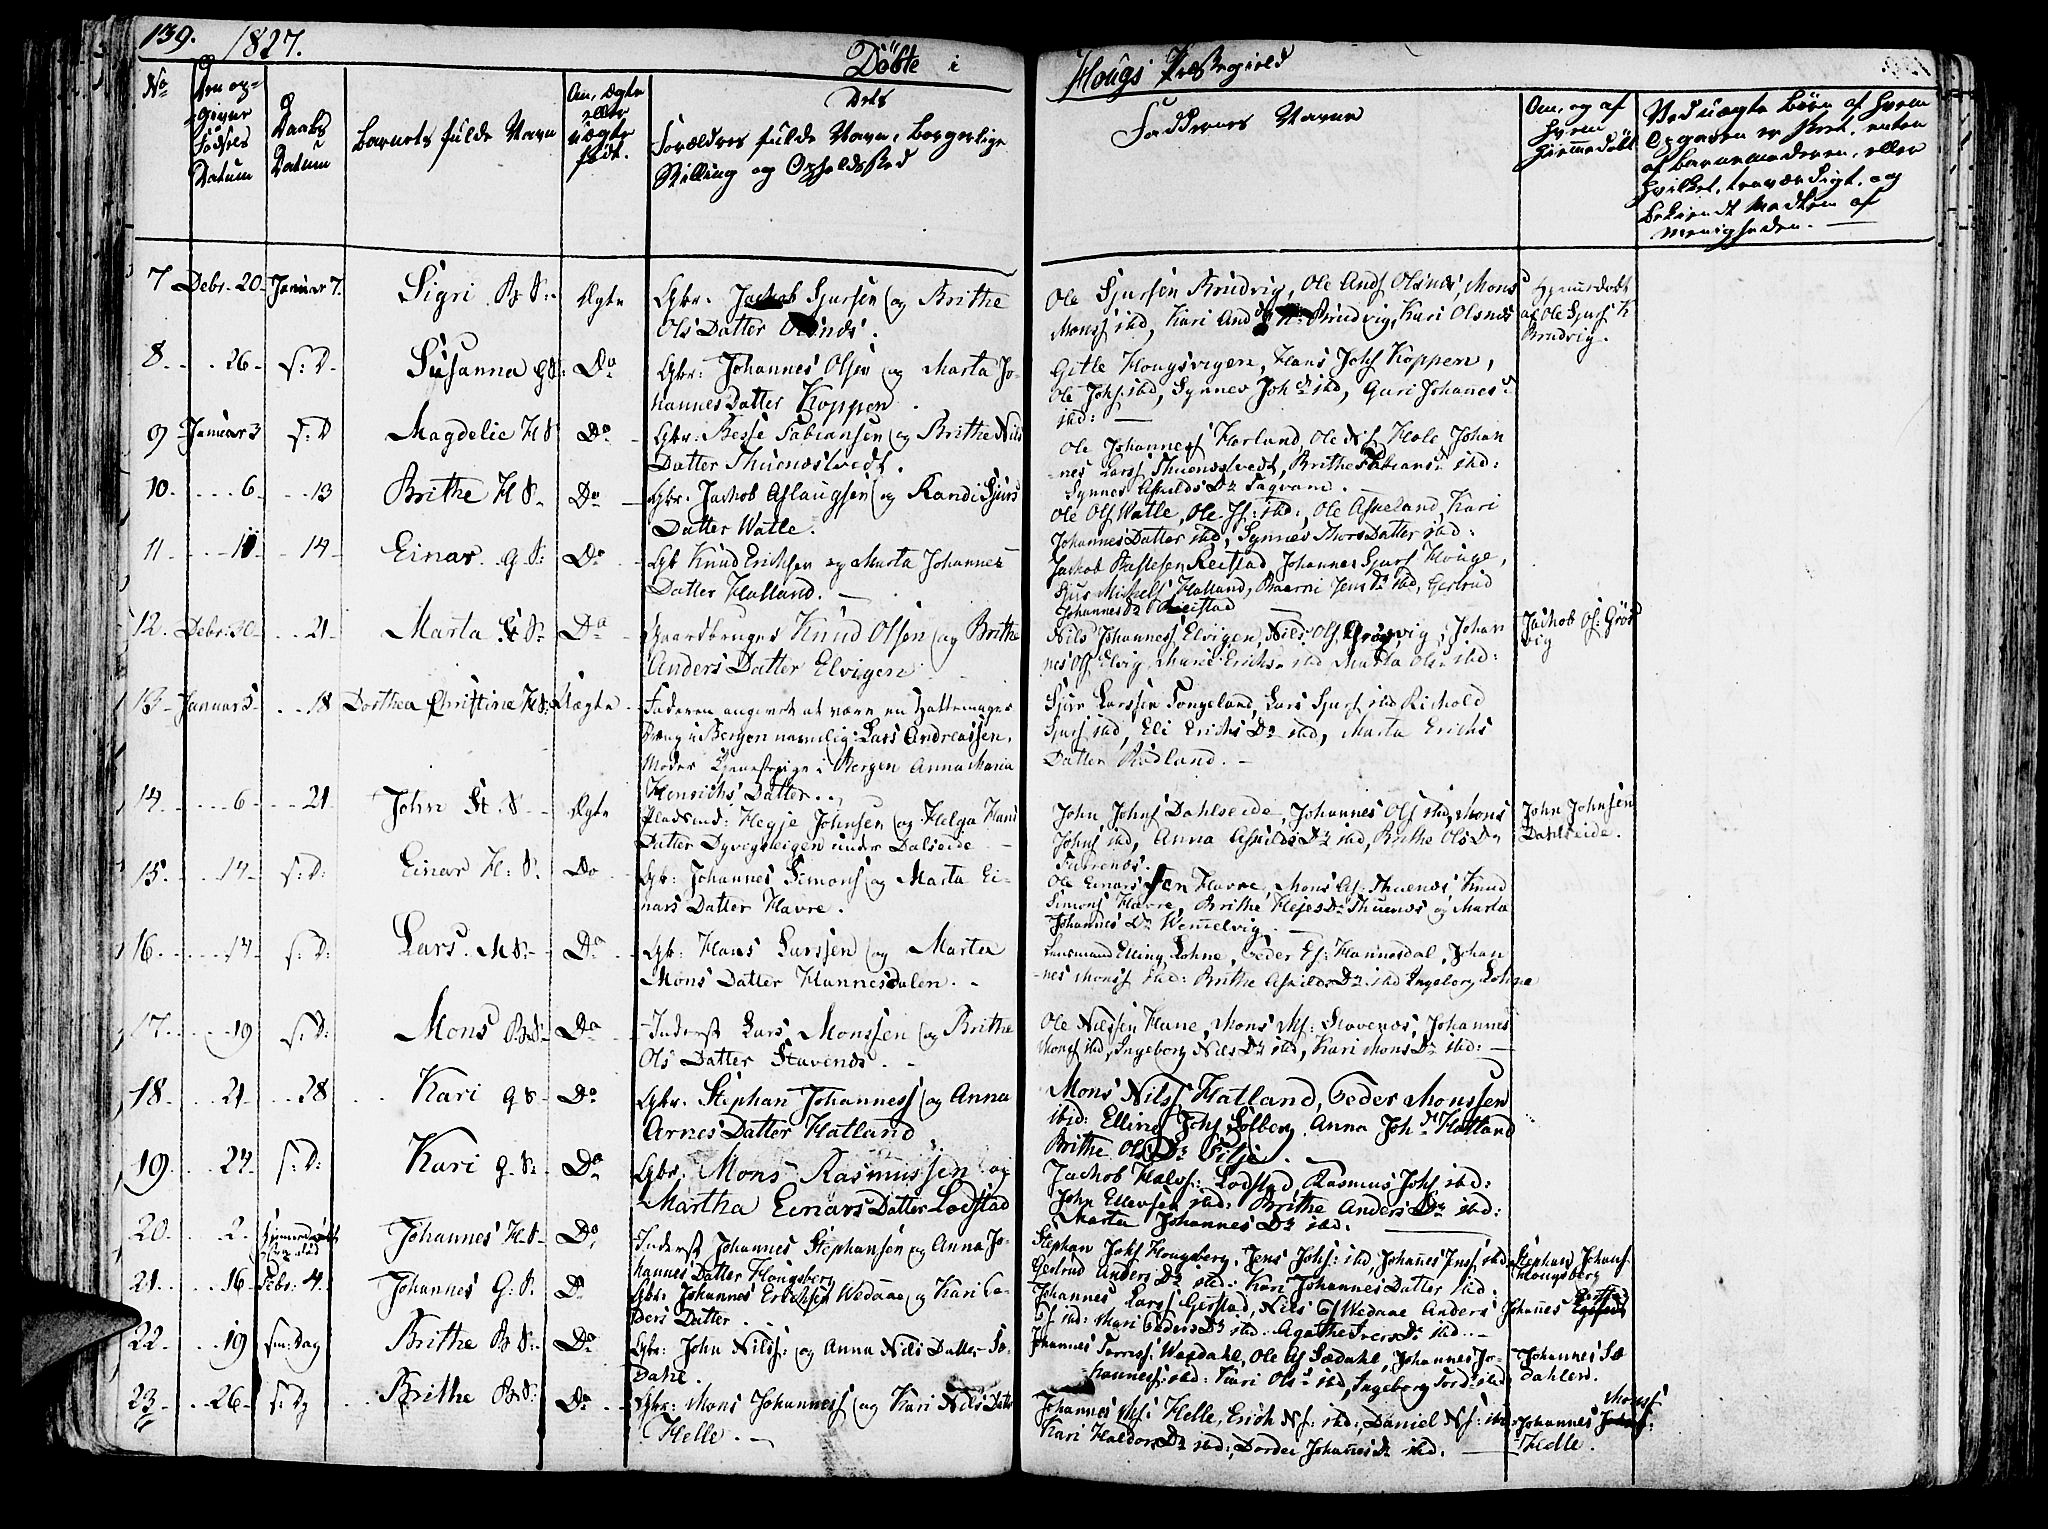 139. 1827. Döbte i Hougs Præstegield
No
Den op-
givne
Födsels
Datum
Daabs
Datum
Barnets fulde Navn
Om ægte
eller
uægte
født.
Dets
Forældres fulde Navn, borgerlige
Stilling og Opholdssted
Faddernes Navne
Om, og af
hvem
hjemmedöbt
Ved uægte Börn af hvem
Opgaven er skeet, enten
af Barnemoderen, eller
hvilket troværdigt, og
bekiendt Medlem af
Menigheden.
7 Debr. 20 Januar 7. Sigri B. S. Ægte Gbr. Jachob Sjursen og Brithe
Ols Datter Olsnæs.
Ole Sjursen Brudvig, Ole Ands Olsnæs, Mons
Monss ibd, Kari Brudvig, Kari Olsnæs
Hjemmedöbt
af Ole Sjurs. K
Brudvig.
8 26 s: D. Susanna G S: Do Gbr: Johannes Olsen og Marta Jo-
hannes Datter Koppen.
Gitle Hougsvigen, Hans Johs Koppen,
Ole Johs. ibd, Synnev Joh Dr ibd, Guri Johanes Dr
ibd:
9 Januar 3 s: D Magdelie H S Do Gbr: Besse Fabiansen og Brithe Nils
Datter Thuenæstvedt.
Ole Johanness Horland, Ole Ns Hole, Johan
nes Larss Thuenæstvedt, Brithe Fabians Dr ibd:
Synnev Askilds Dr Fagvare.
10. 6 13 Brithe H S. Do Gbr. Jachob Aslaugsen og Randi Sjurs
Datter Watle.
Ole Ols Watle, Ole Js: ibd:, Ole Askeland, Kari
Johannes Datter ibd, Synnev Thors Datter ibd:
11 11 14 Einar G S: Do Gb Knud Erichsen og Marta Johannes
Datter Hatland.
Jachob Reistad Johannes Sjurs Houge,
Sjur Michels Hatland, Jens Dr ibd, Gertrud
Johannes Dr Reistad
12. Debr: 30 21 Marta St S. Do Gaardbruger Knud Olsen og Brithe
Anders Datter Elvigen
Nils Johanness Elvigen, Nils Ols Grøsvig, Johan
nes Ols Elvig, Mari Erichs Dr ibd Marta Ols Dr ibd:
Jachob Os: Grös
vig
13 Januar 5 18 Dorthea Christine H S. Uægte Faderen angivet at være en Hattemager
i Bergen navnlig: Lars Andreassen.
Moder Tjenestepige i Bergen Anna Maria
Henrichs Datter.
Sjur Larssen Tongeland, Lars Sjurs ibd Richold
Sjurs ibd, Eli Erichs Dr ibd, Marta Erichs
Datter Rødland.
14 6 21 John St S Ægte Pladsmd: Hegje Johnsen og Helga Hans
Datter Dyvigsneigen under Dalseide
John Johns Dahlseide, Johannes Ols ibd, Mons
Johns ibd, Anna Askilds Dr ibd, Brithe Ols Dr
Fuhrenæs.
John Johnsen
Dahlseide.
15. 14 s: D: Einar H: S. Do Gbr: Johannes Simons og Marta Ei-
nars Datter Havre.
Ole Einarssen Havre, Mons As. Thuenæs Knud
Simons Havre, Brithe Hejes Dr Thuenæs og Marta
Johannes Dr Wemmelvig.
16 14 s: D: Lars. M S. Do Gbr: Hans Larssen og Marta
Mons Datter Hannesdalen.
Lensmand Elling Lohne, Peder Es: Hannesdal, Johan
nes Monss ibd: Brithe Askilds Dr ibd Ingeborg Lohne
17. 19 s: D: Mons B. S. Do Inderst Lars Monssen og Brithe
Ols Datter Stavenæs.
Ole Nilssen Hane, Mons Ms: Stavenæs, Johannes
Monss ibd, Ingeborg Nils Dr ibd, Kari Mons Dr ibd:
18 21 28 Kari G S. Do Gbr. Stephan Johanness og Anna
Arnes Datter Hatland
Mons Nilss Hatland, Peder Monssen
ibid: Elling Johs Solberg. Anna Joh Dr Hatland
Brithe Ols Dr Tilje.
19 24 s: D: Kari G. S. Do Gbr. Mons Rasmussen og
Martha Einars Datter Lodstad
Jachob Halvs: Lodstad Rasmus Johs ibd:
John Ellevsen ibd: Brithe Anders Dr ibd:
Marta Johannes Dr ibd.
20. 2. Hjemmedöbt Johannes H S. Do Inderst Johannes Stephansen og Anna Jo-
hannes Datter Hougsberg
Stephan Johs Hougsberg, Jens Johs: ibd, Johanes Jens ibd
Gertrud Anders Dr ibd: Kari Johannes Datter ibd:
Stephan Johans
Hougsberg
21. 16 Febr: 4. Johannes G: S. Do Gbr. Johannes Erichsen Wedaae og Kari Pe-
ders Datter.
Johannes Larss Gierstad, Nils Es Wedaae Anders
Es ibd: Mari Peders Dr ibd. Agathe Ivers Dr ibd.
Johannes
22 19 sm: Dag Brithe B S. Do Gbr: John Nilss: og Anna Nils Datter Sæ-
Dahl.
Johannes Torress: Wasdahl, Ole As Sædahl, Johannes Jo-
hanness: ibd: Kari Ols Dr ibd, Ingeborg Tords Dr ibd
Johannes Sæ
dahlen.
23 26 s: Dg Brithe B. S: Do Gbr: Mons Johanness og Kari Nils Datter
Helle.
Johannes Ms: Helle, Erich Ns: ibd:, Daniel Ns: ibd:
Kari Haldors Dr ibd:, Dordei Johannes Dr ibd.
Johannes Monss
Helle.